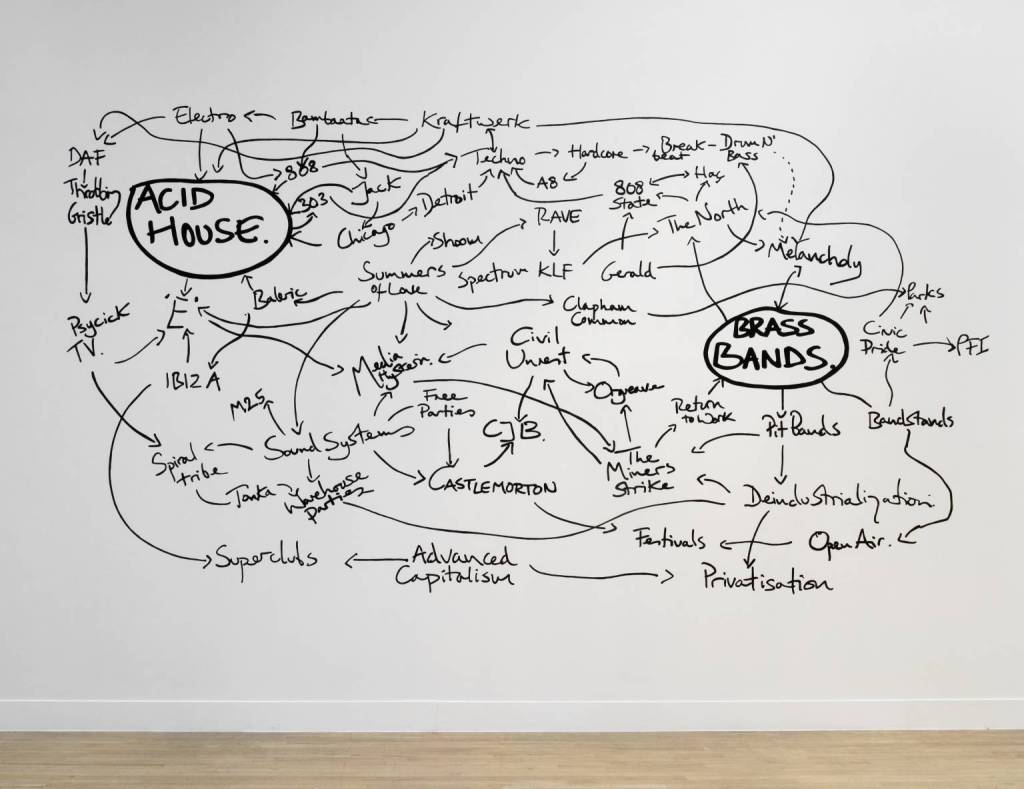 Electro
Bambaataa
Kraftwerk
DAF
808
Techno
Hardcore
Break-
beat
Drum N'
Bass
Throbbin
Gristle
ACID
HOUSE.
303
Jack
Detroit
A8
808
State
Hac
Chicago
RAVE
The North
Shoom
Melancholy
Summers
of Love
Spectrum
KLF
Gerald
Baleric
'E'
Clapham
Common
Parks
Psycick
TV.
BRASS
BANDS.
Civic
Pride
PFI
Civil
Unrest
Media
Hysteria.
IBIZA
Orgreave
M25
Free
Parties
Return
to Work
Pit Bands
Bandstands
Sound Systems
CJB.
Spiral
tribe
The
Miners
Strike
Tonka
Warehouse
Parties
CASTLEMORTON
Deindustrialization.
Festivals
Open Air.
Superclubs
Advanced
Capitalism
Privatisation